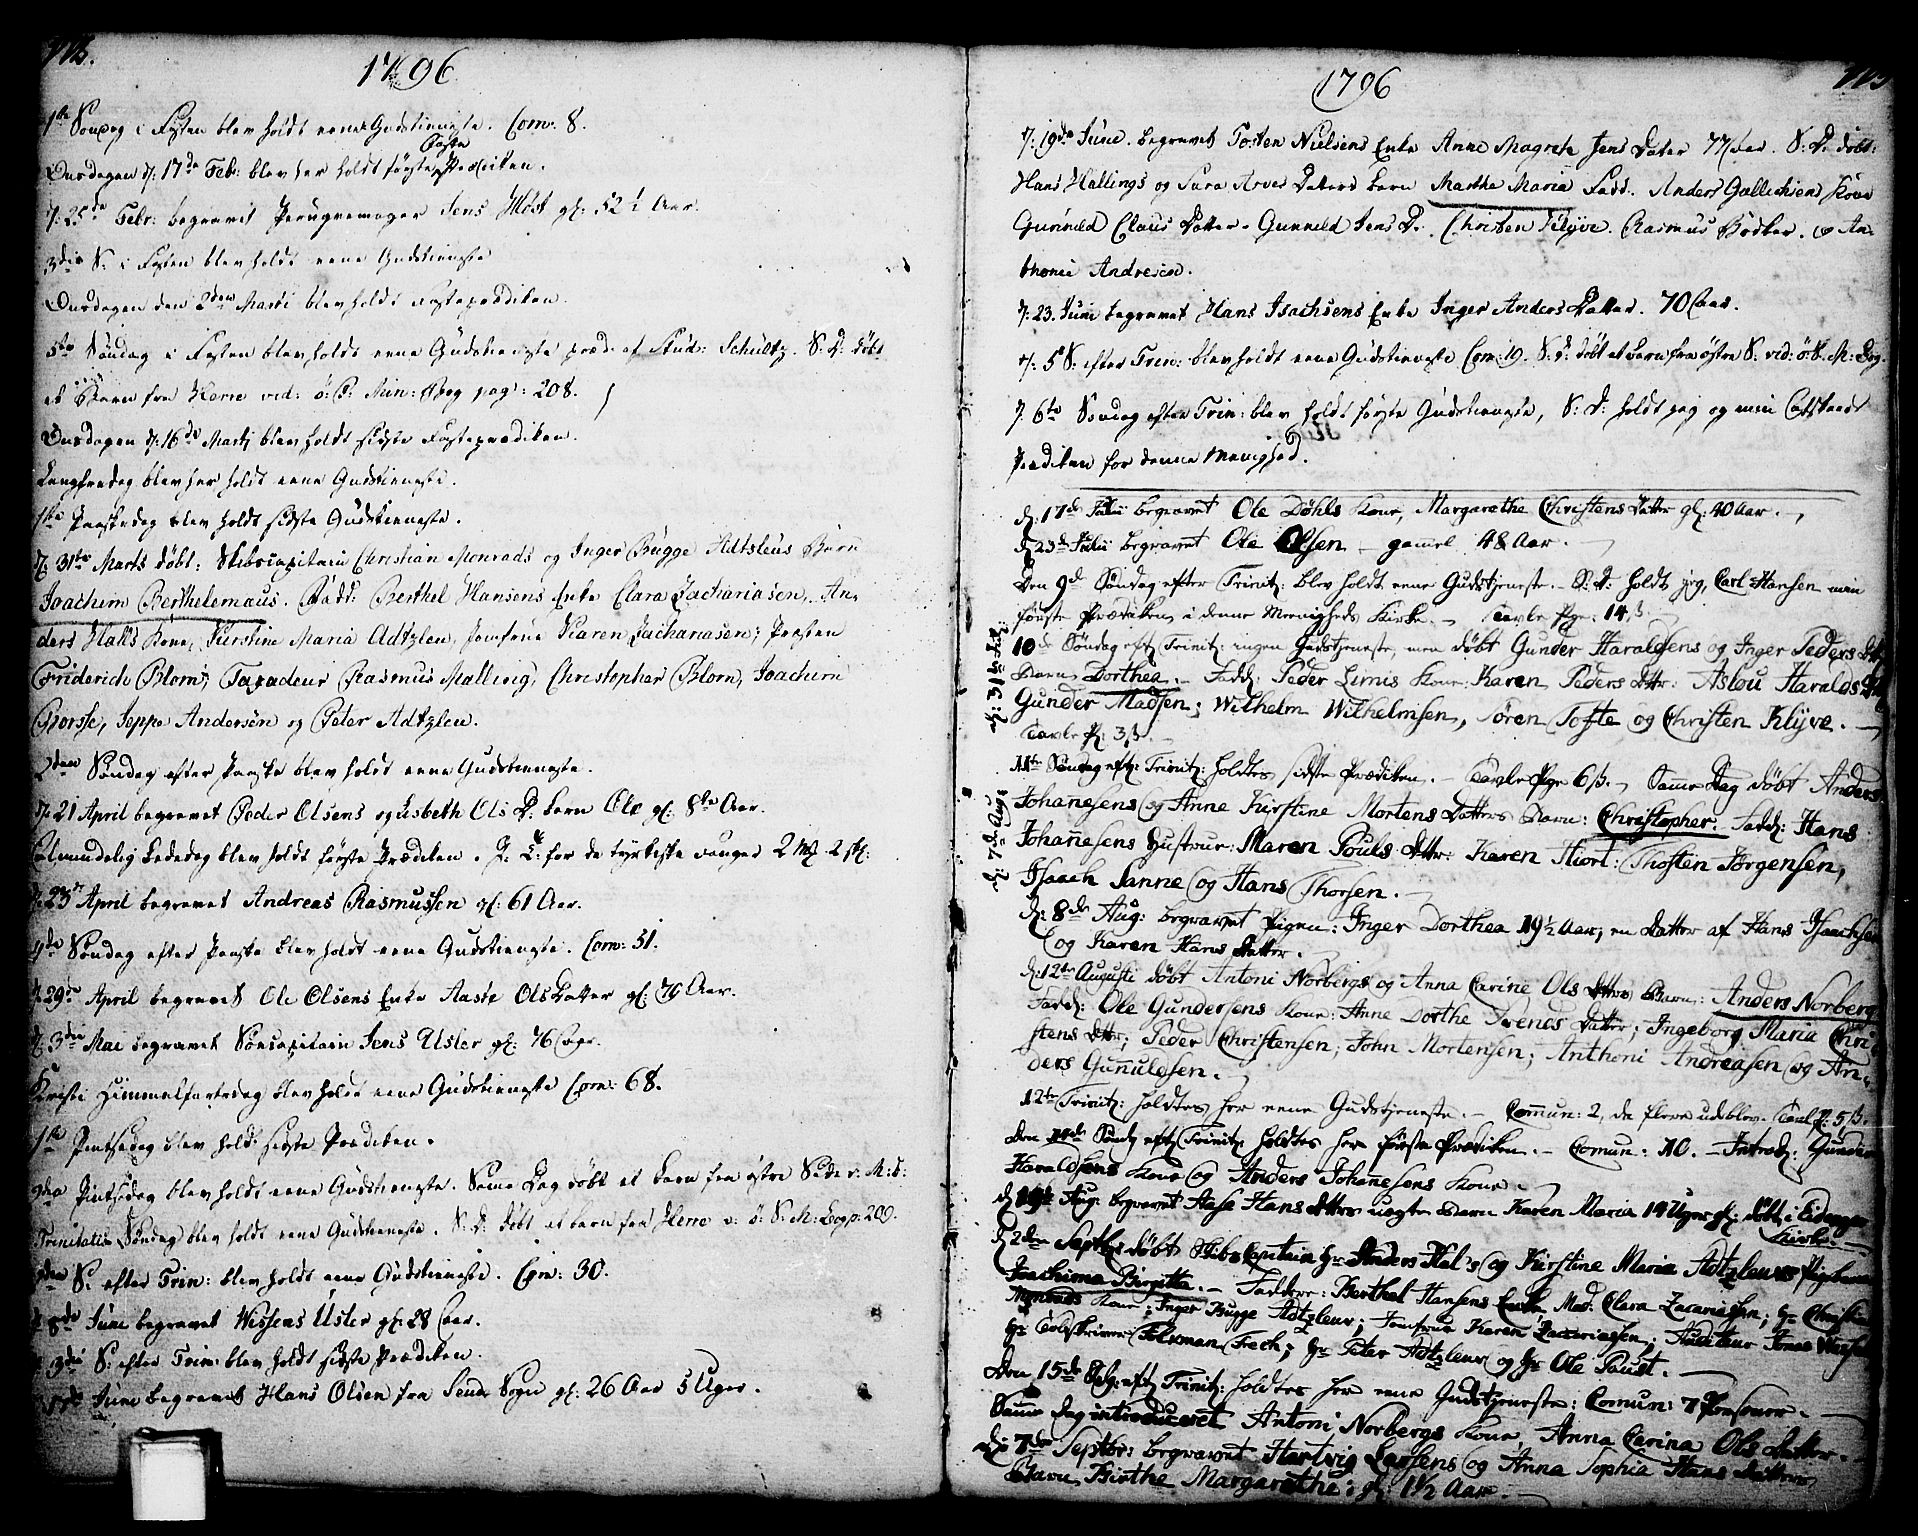 1796
1ste Søndag i Fasten blev holdt eene Gudstieneste. Com: 8.
Faste
Onsdagen d: 17de Feb: blev her holdt første Prædiken.
d: 25de Febr: begravet Perugvemager Jens Høst gl: 52½ Aar.
3die S: i Fasten blev holdt eene Gudstieneste
Onsdagen den 2den Marti blev holdt Fasteprædiken.
5te Søndag i Fasten blev holdt eene Gudstieneste præd: af Stud: Schultz. S: D: døbt
et Barn fra Herre vid: ø: P: Min: Bog pag: 208.
Onsdagen d: 16de Marti blev holdt sidste Fasteprædiken.
Langfredag blev her holdt eene Gudstieneste.
1ste Paaskedag blev holdt sidste Gudstieneste.
d: 31te Marts døbt: Skibscapitain Christian Monrads og Inger Bugge Adtzleus Barn
Joachim Berthelemæus. Fadd: Berthel Hansens Enke Clara Zachariasen, An-
ders Halls Kone, Kirstine Maria Adtzlen, Jomfrue Karen Zachariasen; Præsten
Friderich Blom; Taxadeur Rasmus Malling, Christopher Blom, Joachim
Borsse, Jeppe Andersøn og Peter Adtzlen.
2den Søndag efter Paaske blev holdt eene Gudstieneste.
d: 21 April begravet Peder Olsens og Lisbeth Ols D: barn Ole gl: 8te Aar.
Almindelig Bededag blev holdt første Prædiken. J: T: for de tyrkiske fanger 2 mk 2 sk:
d: 23de April begravet Andreas Rasmussen gl: 61 Aar.
4de Søndag efter Paaske blev holdt eene Gudstieneste. Com: 51.
d: 29de April begravet Ole Olsens Enke Aaste Ols Datter gl: 79 Aar.
d: 3die Mai begravet Søecapitain Jens Usler gl: 76 Aar.
Kristi Himmelfartsdag blev holdt eene Gudstieneste Com: 68.
1ste Pintsedag blev holdt sidste Prædiken.
2den Pintsedag blev holdt eene Gudstieneste. Same Dag døbt et barn fra østre Side v: M: B:
Trinitatis Søndag blev holdt eene Gudstieneste. S: D: døbt et barn fra Herre v: ø: S: M: Bog p: 209.
2den S: efter Trin: blev holdt eene Gudstieneste. Com: 30.
Juni begravet Wissens Uster gl: 28 Aar.
3die S: efter Trin: blev holdt sidste Prædiken.
Juni begravet Hans Olsen fra Sende Sogn gl: 26 Aar 5 Uger.
1796
d: 19de Juni. begravet Tosten Nielsens Enke Anne Magrete Jens Dater 77 Aar. S: D: døbt:
Hans Hallings og Sara Arves Daters barn Marthe Maria Fadd: Anders Gallichsens Kone
Gunild Claus Datter. Gunneld Jens D: Christen Klyve. Rasmus Bødker. og An-
thonie Andresen.
d: 23. Juni begravet Hans Isachsens Enke Inger Anders Datter. 70 Aar.
d: 5te S: efter Trin: blev holdt eene Gudstieneste Com: 19. S: D: døbt et barn fra østre S: vid: ø: S: M: Bog.
d: 6te Søndag efter Trin: blev holdt første Gudstieneste, S: D: holdt jeg og min Afskeeds
Prædiken for denne Menighed.
d: 17de Julii begravet Ole Døhls Kone, Margarethe Christens Datter gl: 40 Aar.
d: 23de Julii begravet Ole Olsen gamel 48 Aar.
Den 9de Søndag efter Trinit: blev holdt eene Gudstjeneste. S: D: holdt jeg, Carl Hansen min
første Prædiken i denne Menigheds Kirke. Tavle Pge: 14 ß.
d: 31te Julii
10de Søndag eft: Trinit: ingen Gudstjeneste, men døbt Gunder Haraldsens og Inger Peders Dttr
Barn Dorthea. Fadd: Peder Limis Kone: Karen Peders Dttr: Aslou Haralds
Gunder Madsen; Wilhelm Wilhelmsen, Søren Tofte og Christen Klyve.
Tavle P: 3 ß.
11te Søndag eft: Trinit: holdtes sidste Prædiken. Tavle Pge 6 ß. Samme Dag døbt Anders
d: 7de Aug:
Johanesens og Anne Kirstine Mortens Datters Barn: Christopher. Fadd: Hans
Johanesens Hustrue: Maren Pouls Dttr: Karen Hiort: Thosten Jørgensen,
Isach Sanne og Hans Thorsen.
d: 8de Aug: begravet Pigen: Inger Dorthea 19½ Aar; en Datter af Hans Isachsen
og Karen Hans Datter.
d: 12te Augusti døbt Antoni Norbergs og Anna Carine Ols Dttrs Barn: Anders Norberg
Fadd: Ole Gundersens Kone: Anne Dorthe Svends Datter; Ingeborg Maria Chri-
stens Dttr; Peder Christensen; John Mortensen; Anthoni Andreasen og An-
ders Gunuldsen.
12te Trinit: holdtes her eene Gudstjeneste. Commun: 2, de flere udeblev. Tavl P: 5 ß.
Den 14de Sønd: eft: Trinit: holdtes her første Prædiken. Comun: 10. Introd: Gunder
Haraldsens Kone og Anders Johanesens Kone.
d: 19de Aug: begravet Aase Hans Dttrs uægte Barn Karen Maria 14 Uger gl: døbt i Eidanger
Kirke.
d: 2den Septbr døbt Skibs Capitain Hr Anders Hal's og Kirstine Maria Adtzleurs Pigebarn
Joachima Birgitta. Faddere: Berthel Hansens Enke Mad: Clara Zacariassen; Hr Christian
Monrads Kone; Inger Bugge Adtzleur; Jomfrue Karen Zacariassen; Auditeur Jonas Wessel
Hr Toldskriver Folkman Frech; Hr Peter Adtzleur og Hr Ole Paust.
Den 15de Sø: eft: Trinit: holdtes her eene Gudstjeneste: Comun: 7 Personer.
Samme dag introduceret Antoni Norbergs Kone Anna Carina Ols Datter.
d: 7de Septbr: begravet Hartvig Larsens og Anna Sophia Hans Datters
Barn Birthe Margarethe; gl: 1½ Aar.